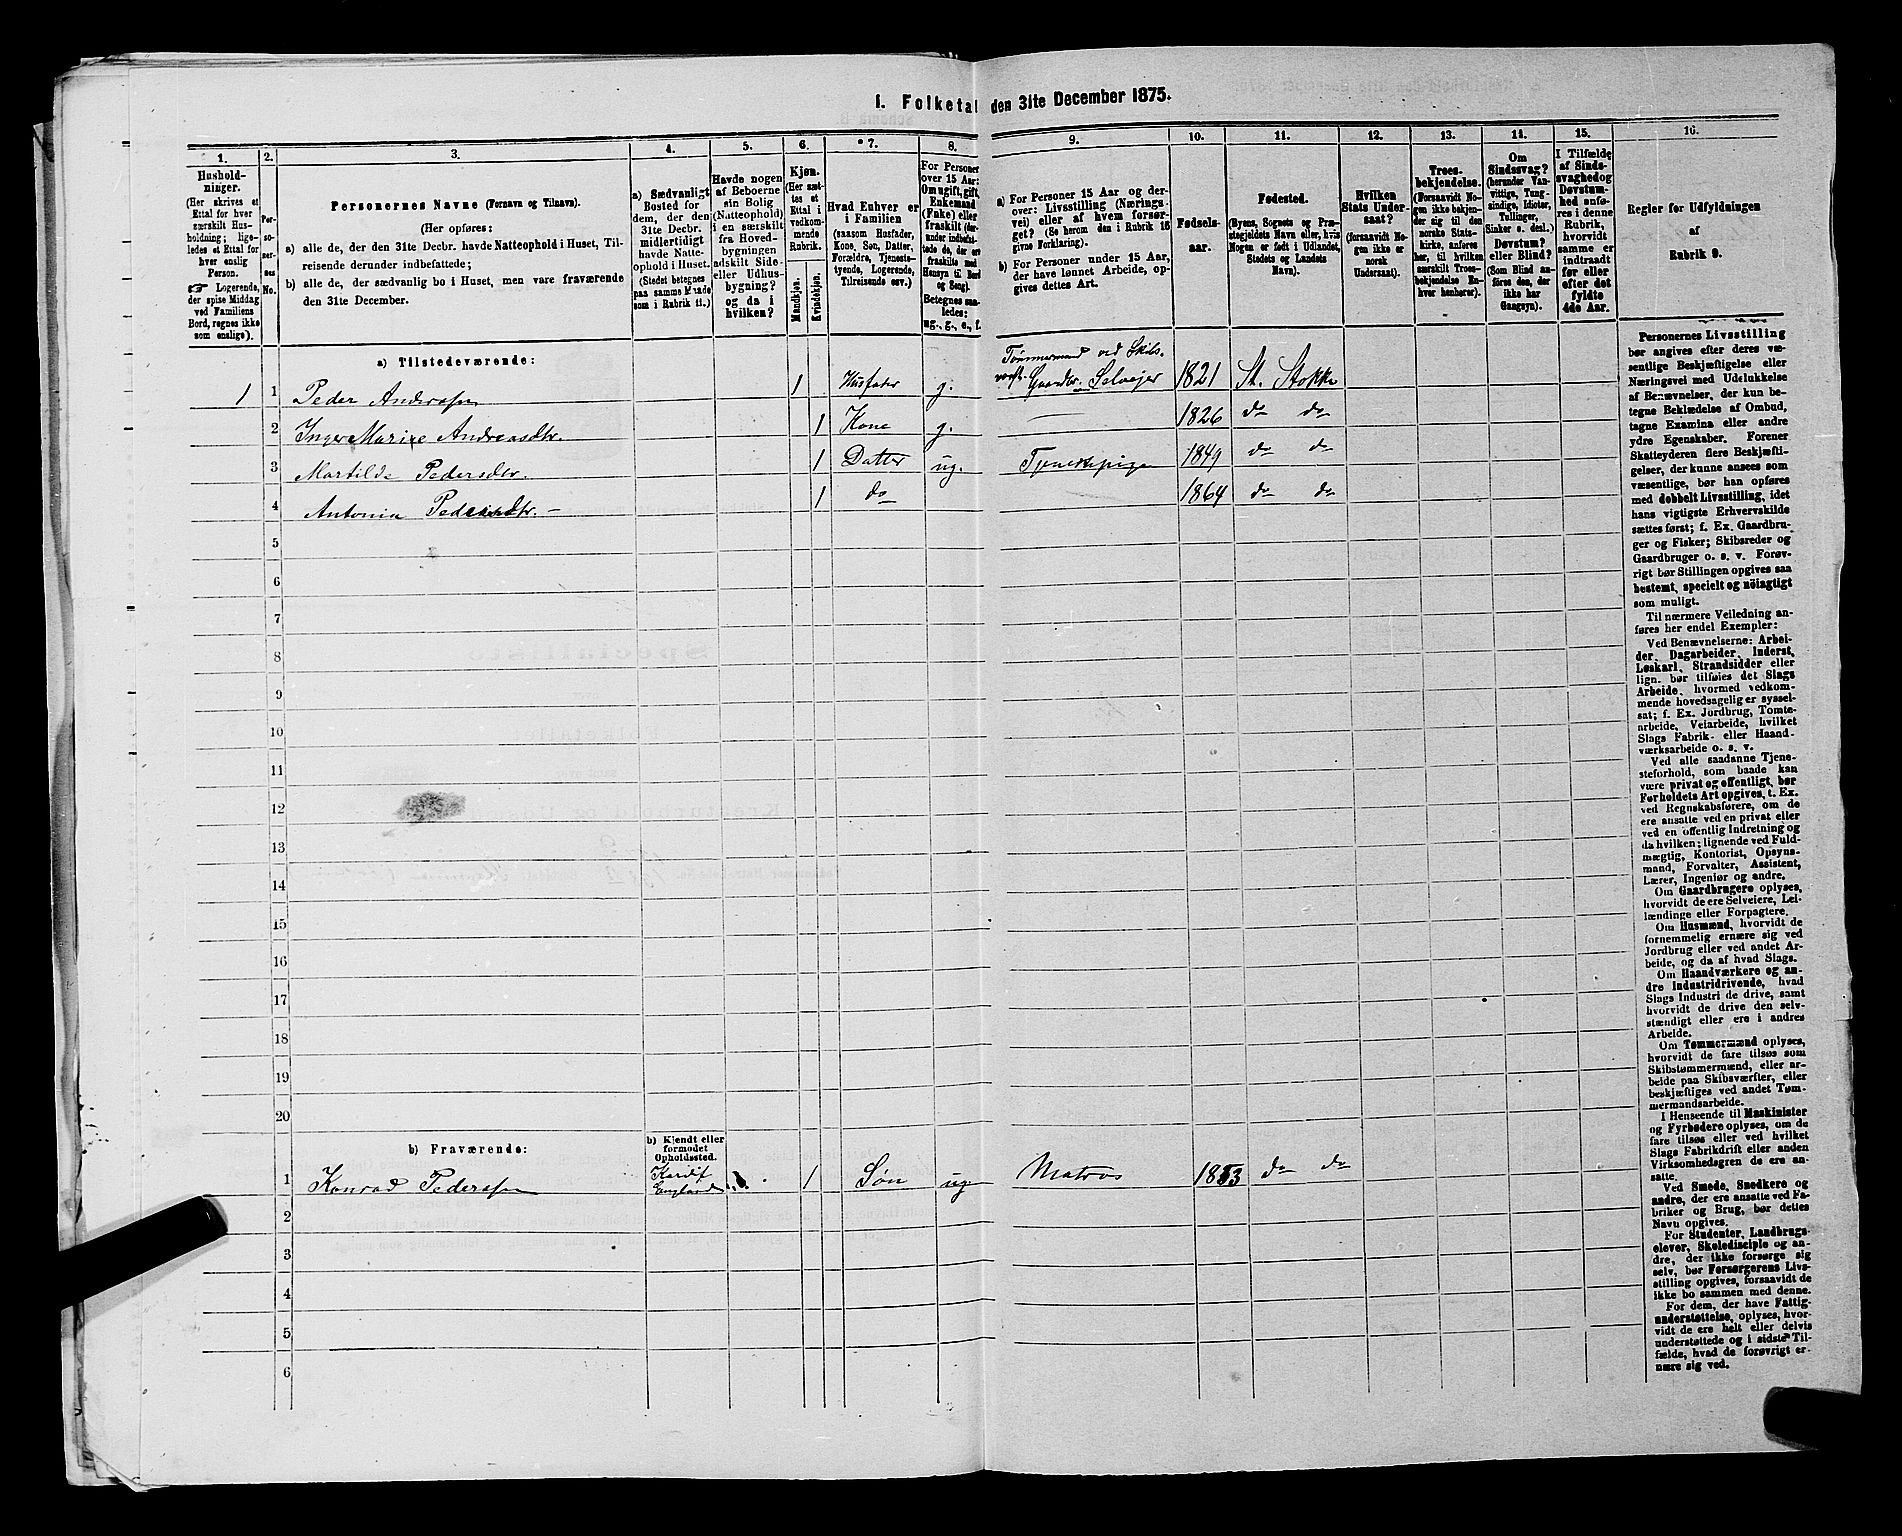 1. Folketal den 31te December 1875.
1.
2.
3.
4.
5.
6.
7.
8.
9.
10.
11.
12.
13.
14.
15.
16.
Hushold-
ninger.
(Her skrives et
Ettal for hver
særskilt Hus-
holdning; lige-
ledes et Ettal for
hver enslig
Person.
☞ Logerende,
der spise Middag
ved Familiens
Bord, regnes ikke
som enslige).
Per-
so-
ner-
nes
No.
Personernes Navne (Fornavn og Tilnavn).
(Her opføres:
a) alle de, der den 31te Decbr. havde Natteophold i Huset, Til-
reisende derunder indbefattede;
b) alle de, der sædvanlig bo i Huset, men vare fraværende
den 31te December.
a) Sædvanligt
Bosted for
dem, der den
31te Decbr.
midlertidigt
havde Natte-
ophold i Huset.
(Stedet betegnes
paa samme Maade
som i Rubrik 11.)
Havde nogen
af Beboerne
sin Bolig
(Natteophold)
i en særskilt
fra Hoved-
bygningen
adskilt Side-
eller Udhus-
bygning?
og da i
hvilken?
Kjøn.
(Her sæt-
tes et
Ettal i
vedkom-
mende
Rubrik.
Mandkjøn.
Kvindekjøn.
Hvad Enhver er
i Familien
(saasom Husfader,
Kone, Søn, Datter,
Forældre, Tjeneste-
tyende, Logerende,
Tilreisende osv.)
For Personer
over 15 Aar:
Om ugift, gift
Enkemand
(Enke) eller
fraskilt (der-
under indbefat-
tede de, der ere
fraskilte med
Hensyn til Bord
og Seng).
Betegnes saa-
ledes:
ug., g., e., f.
a) For Personer 15 Aar og der-
over: Livsstilling (Nærings-
vei) eller af hvem forsør-
get? (Se herom den i Rubrik 16
givne Forklaring).
b) For Personer under 15 Aar,
der have lønnet Arbeide, op-
gives dettes Art.
Fødsels-
aar.
Fødested.
(Byens, Sognets og Præ-
stegjeldets Navn eller, hvis
Nogen er født i Udlandet,
Stedets og Landets
Navn).
Hvilken
Stats Under-
saat?
(forsaavidt No-
gen ikke er
norsk
Undersaat).
Troes-
bekjendelse.
(Forsaavidt No-
gen ikke bekjen-
der sig til den
norske Stats-
kirke, anføres
her, til hvilken
særskilt Troes-
bekjendelse En-
hver henhører).
Om
Sindssvag?
(herunder Van-
vittige, Tung-
sindige, Idioter,
Tullinger,
Sinker o. desl.)
Døvstum?
eller Blind?
(Som Blind an-
føres den, der
ikke har
Gangsyn).
I Tilfælde
af Sinds-
svaghed og
Døvstum-
hed anfø-
res i denne
Rubrik,
hvorvidt
samme er
indtraadt
før eller
efter det
fyldte
4de Aar.
Regler for Udfyldningen
af
Rubrik 9.
a) Tilstedeværende:
Tømmermand ved Skibs-
1 1 Peder Andersen 1 Husfader g. værft. Gaardbr. Selvejer 1821 St. Stokke
2 Inger Marie Andreasdtr. 1 Kone g. — 1826 do do
3 Martilde Pedersdtr. 1 Datter ug. Tjenestepige 1849 do do
4 Antonia Pedersdtr. — 1 do — 1864 do do
5
6
7
8
9
10
11
12
13
14
15
16
17
18
19
20
b) Fraværende:
b) Kjendt eller
formodet
Opholdssted.
Kardif
1 Konrad Pedersen England 1 Søn ug. Matros 1853 do do
2
3
4
5
6
Personernes Livsstilling
bør angives efter deres væ-
sentlige Beskjæftigelse eller
Næringsvei med Udelukkelse
af Benævnelser, der kun be-
tegne Beklædelse af Ombud,
tagne Examina eller andre
ydre Egenskaber. Forener
Skatteyderen flere Beskjæfti-
gelser, der kunne ansees som
væsentlige, bør han opføres
med dobbelt Livsstilling, idet
hans vigtigste Erhvervskilde
sættes først; f. Ex. Gaardbru-
ger og Fisker; Skibsreder og
Gaardbruger o. s. v. Forøv-
rigt bør Stillingen opgives saa
bestemt, specielt og nöiagtigt
som muligt.
Til nærmere Veiledning an-
føres her endel Exempler:
Ved Benævnelserne: Arbei-
der, Dagarbeider, Inderst,
Løskarl, Strandsidder eller
lign. bør tilføies det Slags
Arbeide, hvormed vedkom-
mende hovedsagelig er syssel-
sat; f. Ex. Jordbrug, Tomte-
arbeide, Veiarbeide, hvilket
Slags Fabrik- eller Haand-
værksarbeide o. s. v.
Ved alle saadanne Tjene-
steforhold, som baade kan
være privat og offentligt, bør
Forholdets Art opgives, t. Ex.
ved Regnskabsførere, om de
ere ansatte ved en privat eller
ved en offentlig Indretning og
da hvilken; lignende ved Fuld-
mægtig, Kontorist, Opsyns-
mand, Forvalter, Assistent,
Lærer, Ingeniør og andre.
Om Gaardbrugere oplyses,
hvorvidt de ere Selveiere, Lei-
lændinge eller Forpagtere.
Om Husmænd, hvorvidt de
fornemmelig ernære sig ved
Jordbrug eller ved andet Ar-
beide, og da af hvad Slags.
Om Haandværkere og an-
dre Industridrivende, hvad
Slags Industri de drive, samt
hvorvidt de drive den selv-
stændigt eller ere i andres
Arbeide.
Om Tømmermænd oplyses,
hvorvidt de fare tilsøs som
Skibstømmermænd, eller ar-
beide paa Skibsværfter, eller
beskjæftiges ved andet Tøm-
mermandsarbeide.
I Henseende til Maskinister
og Fyrbødere oplyses, om de
fare tilsøs eller ved hvilket
Slags Fabrikdrift eller anden
Virksomhedsgren de ere an-
satte.
Ved Smede, Snedkere og
andre, der ere ansatte ved Fa-
briker og Brug, bør dettes
Navn opgives.
For Studenter, Landbrugs-
elever, Skoledisciple og an-
dre, der ikke forsørge sig
selv, bør Forsørgerens Livs-
stilling opgives, forsaavidt de
ikke bo sammen med denne.
For dem, der have Fattig-
understøttelse, oplyses, hvor-
vidt de ere helt eller delvis
understøttede og i sidste Til-
fælde, hvad de forøvrigt er-
nære sig ved.